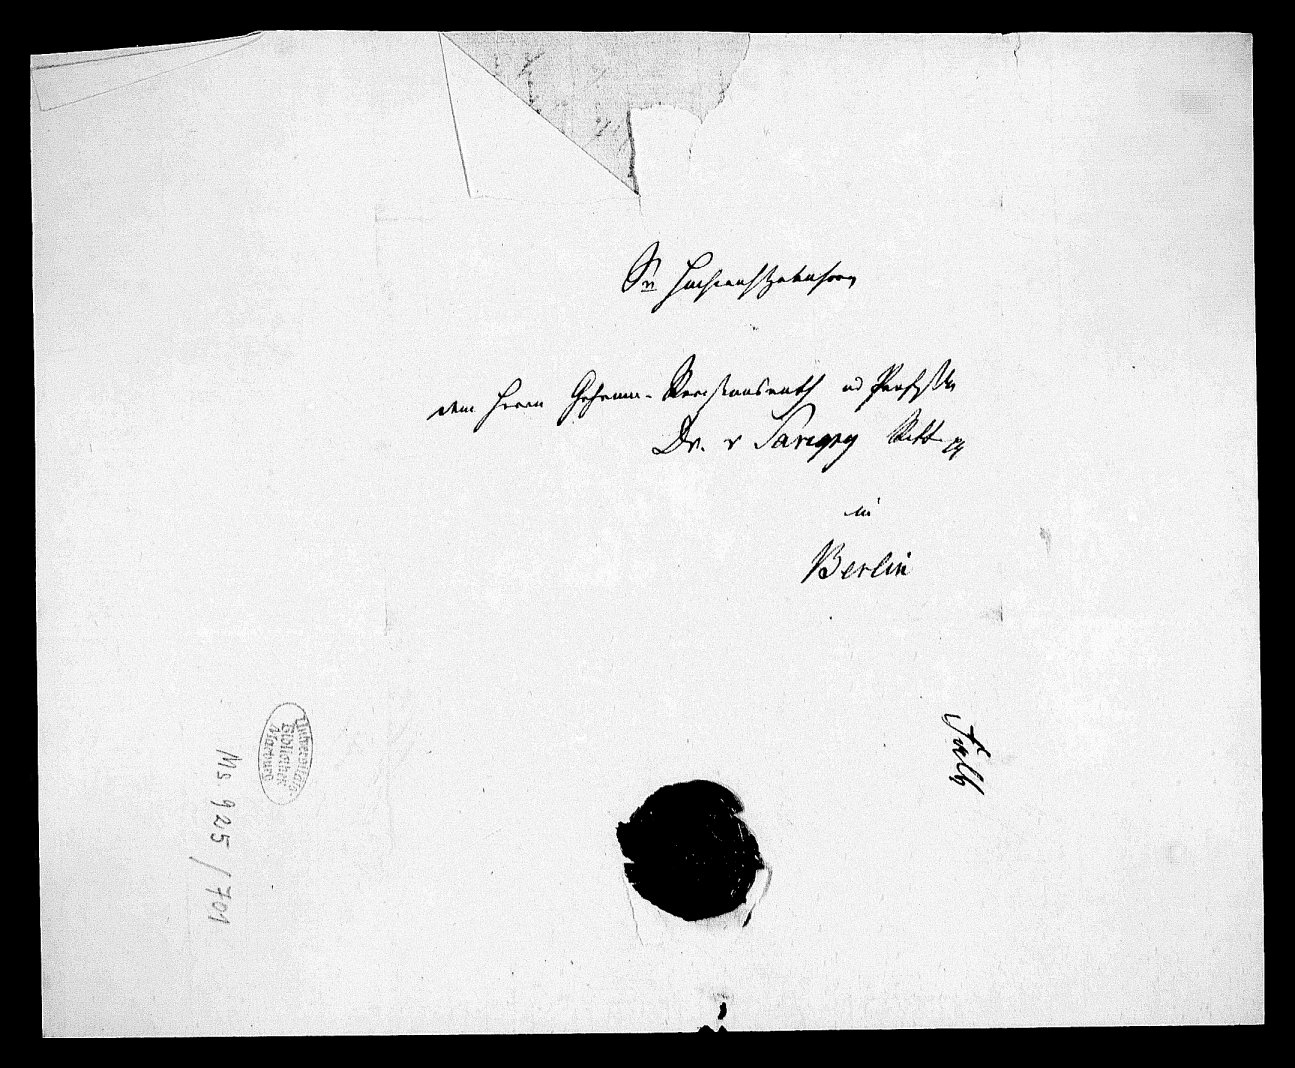 Sr Hochwohlgebohren
dem Herrn Geheim-Revisionsrath und Professor
Dr. v Savigny Ritter
in
Berlin
Universitäts-
Bibliothek
Marburg
Ms. 925/701